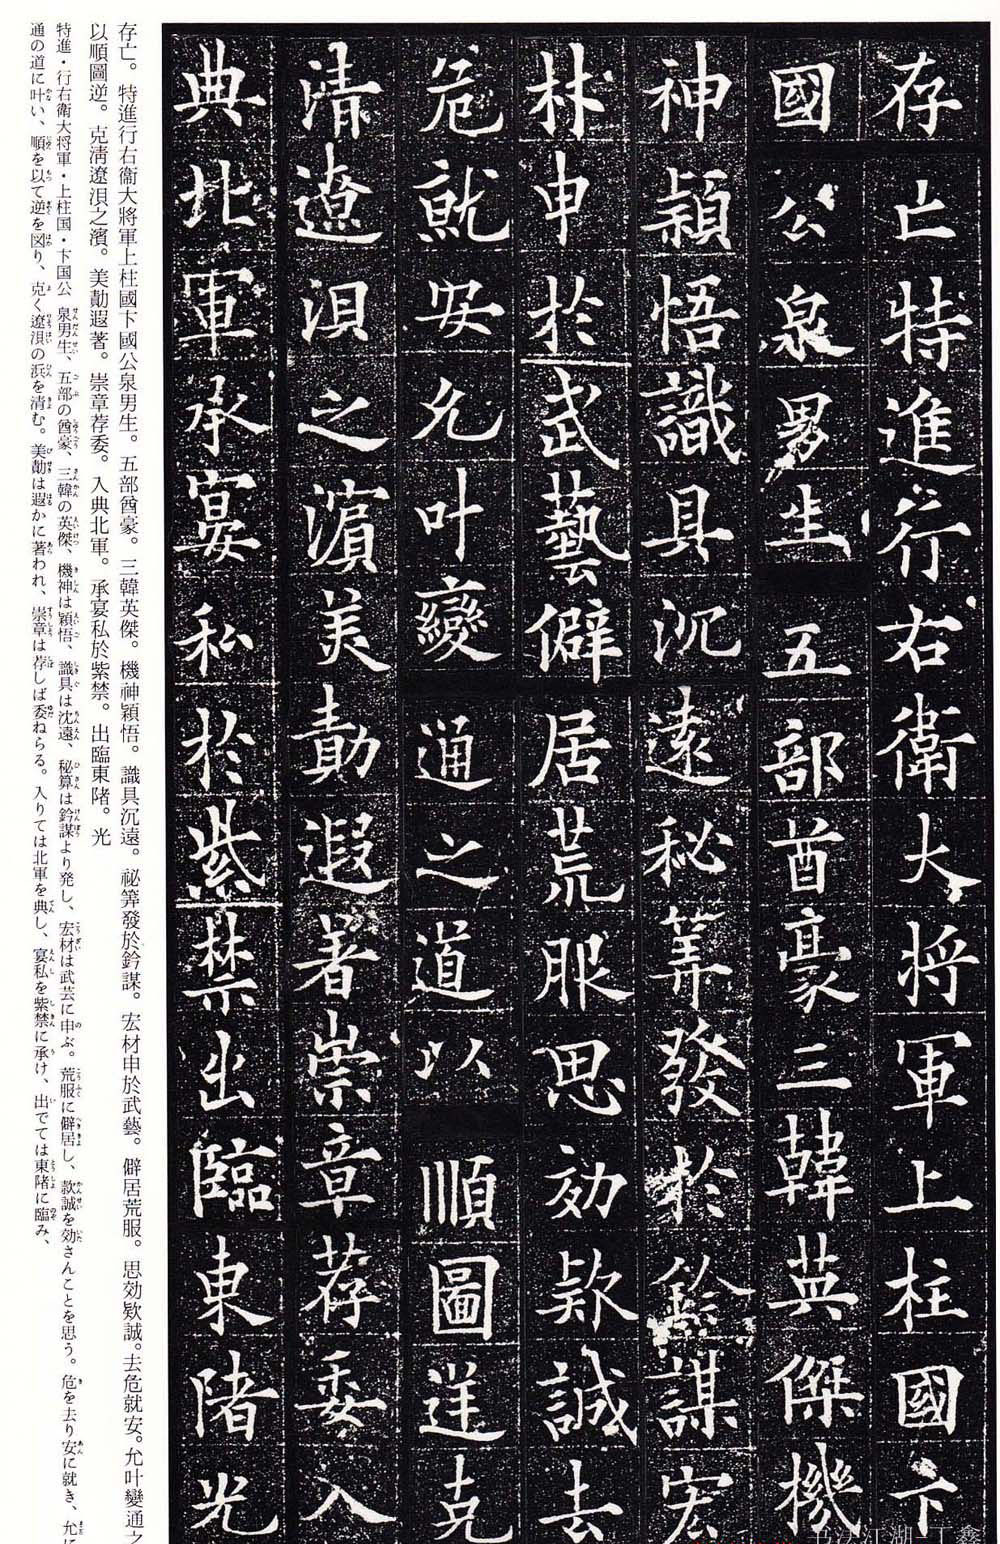 存亡特進行右衛大将軍上柱國卞
國公泉男生五部酋豪三韓英傑機
神穎悟識具沉遠秘筭發於鈐謀宏
材申於武藝僻居荒服思効欵誠去
危就安允叶變通之道以順圖逆克
清遼浿之濱美勣遐著崇章荐委入
典北軍承宴私於紫禁出臨東陼光
存亡。特進行右衞大將軍上柱國卞國公泉男生。五部酋豪。三韓英傑。機神穎悟。識具沉遠。祕筭發於鈐謀。宏材申於武藝。僻居荒服。思効欵誠。去危就安。允叶變通之
以順圖逆。克淸遼浿之濱。美勣遐著。崇章荐委。入典北軍。承宴私於紫禁。出臨東陼。光
特進・行右衛大将軍・上柱国・卞国公泉男生、五部の酋豪、三韓の英傑、機神は穎悟、識具は沈遠、秘算は鈐謀より発し、宏材は武芸に申ぶ。荒服に僻居し、款誠を効さんことを思う。危を去り安に就き、允に
通の道に叶い、順を以て逆を図り、克く遼浿の浜を清む。美勣は遐かに著われ、崇章は荐しば委ねらる。入りては北軍を典し、宴私を紫禁に承け、出でては東陼に臨み、
书法江湖 丁鑫